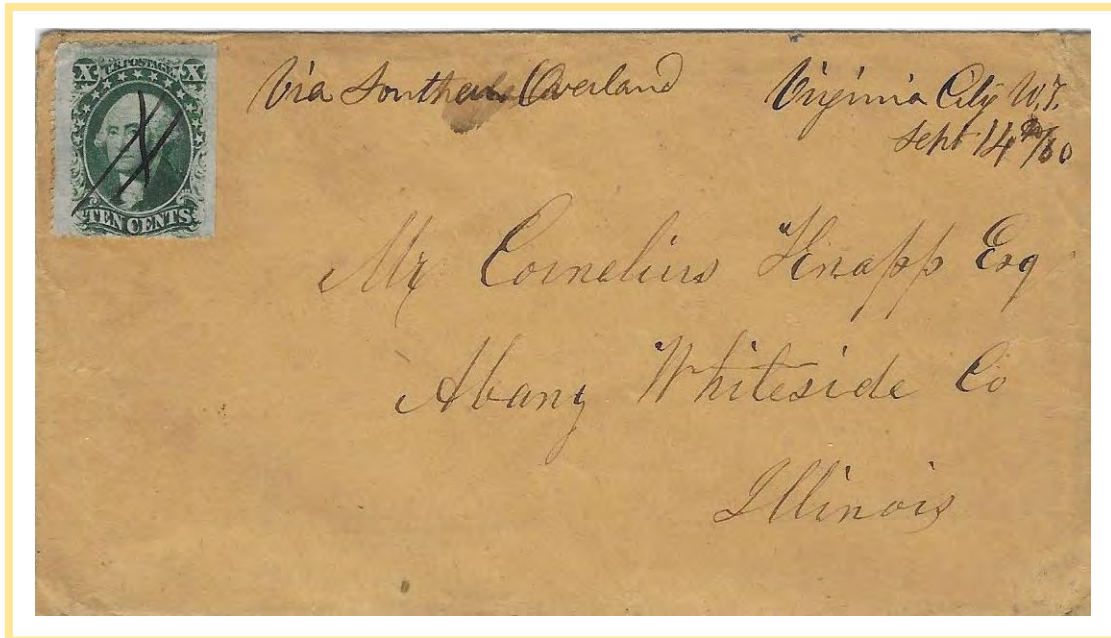 X U.S. POSTAGE. X
TEN CENTS
Via Southern Overland
Virginia City U.T.
Sept 14th/60
Mr Cornelius Knapp Esq
Abany Whiteside Co
Illinois